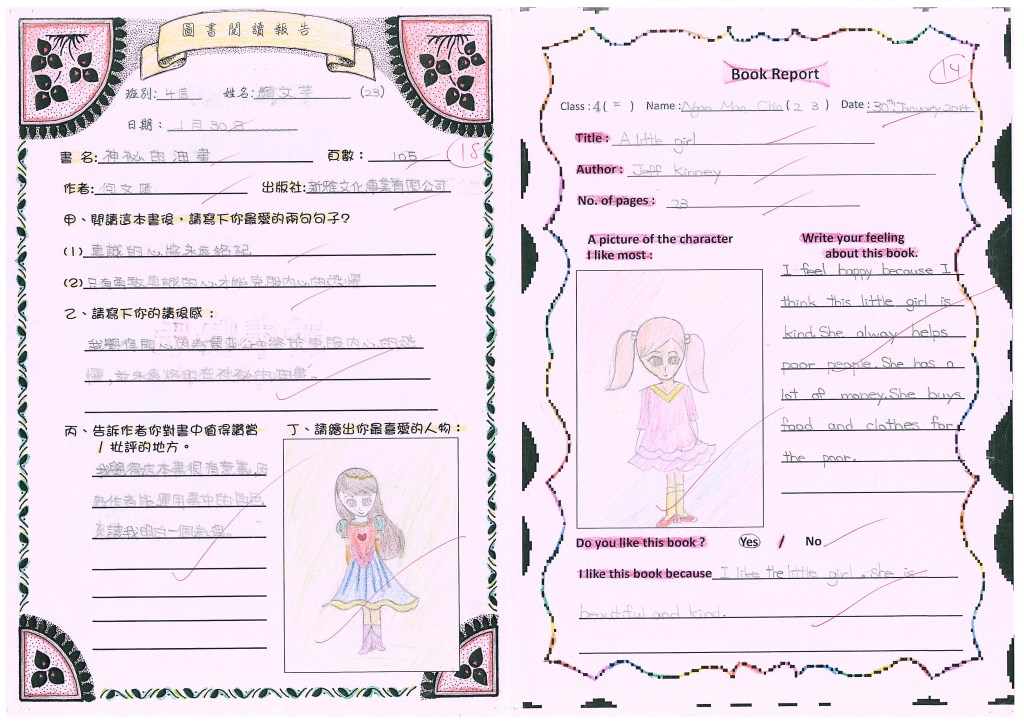 圖書閱讀報告
班別: 4 姓名: 顏文 (23)
日期: 1月30日
書名: 神祕的油畫 頁數: 105
18
作者: 何文 出版社: 新雅文化事業有限公司
甲、閱讀這本書後,請寫下你最愛的兩句句子?
(1) 真誠的心將永遠銘記
(2) 只有勇敢真誠的心才能克服內心的恐懼
乙、請寫下你的讀後感:
我覺得開心因為 克服內心的恐
懼, 在神祕的油畫。
丙、告訴作者你對書中值得讚賞
/批評的地方。
我覺得這本書很有意義,因
為作者能運用書中的
來讓我明白一個道理。
丁、請繪出你最喜愛的人物:
Book Report
14
Class : 4 ( ) Name : Ngan Man (23) Date : 30th January 2014
Title : A little girl
Author : Jeff Kinney
No. of pages : 23
A picture of the character
I like most :
Write your feeling
about this book.
I feel happy because I
think this little girl is
kind. She alway helps
poor people. She has a
lot of money. She buys
food and clothes for
the poor.
Do you like this book ? Yes / No
I like this book because I like the little girl. She is
beautiful and kind.